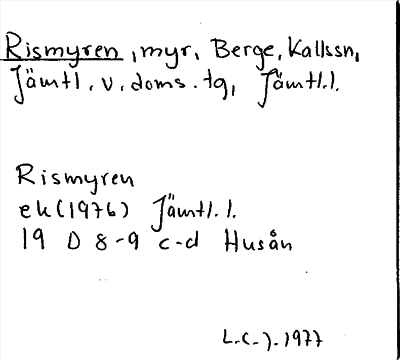 Rismyren, myr, Berge, Kallssn,
Jämtl. v. doms. tg, Jämtl.l.
Rismyren
ek (1976) Jämtl. l.
19 D 8-9 c-d Husån
L.C.J. 1977